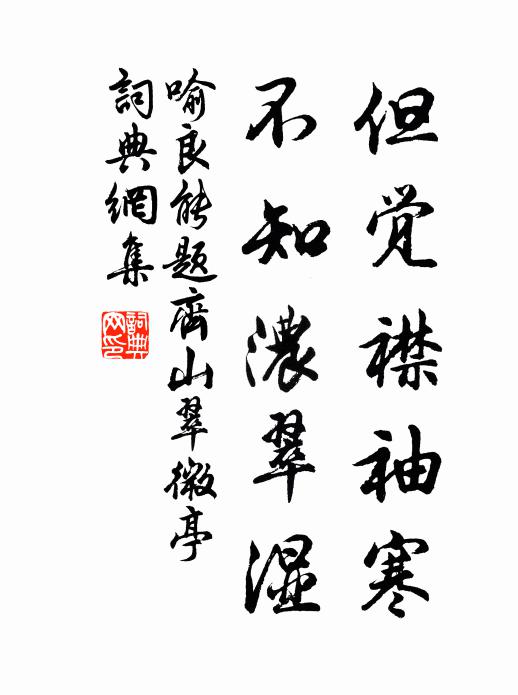 但觉襟袖寒
不知濃翠湿
喻良能题齊山翠微亭
詞典網集
詞典
网印